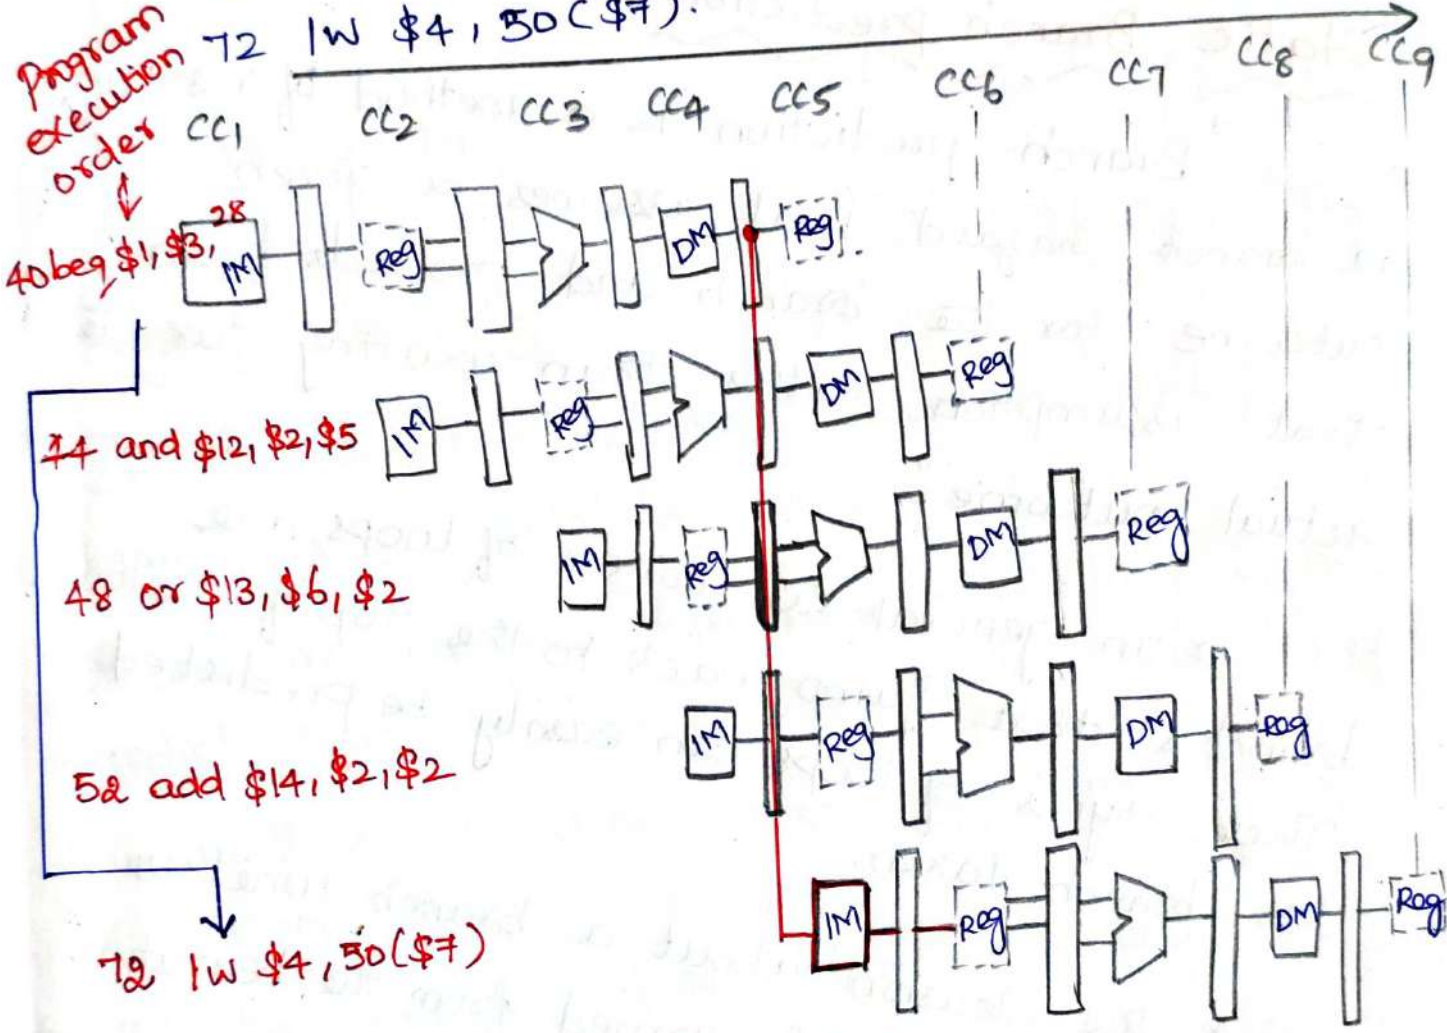 72 lw $4, 50($7).
Program
execution
order
CC1 CC2 CC3 CC4 CC5 CC6 CC7 CC8 CC9
40 beq $1, $3, 28
IM Reg DM Reg
44 and $12, $2, $5
IM Reg DM Reg
48 or $13, $6, $2
IM Reg DM Reg
52 add $14, $2, $2
IM Reg DM Reg
72 lw $4, 50($7)
IM Reg DM Reg